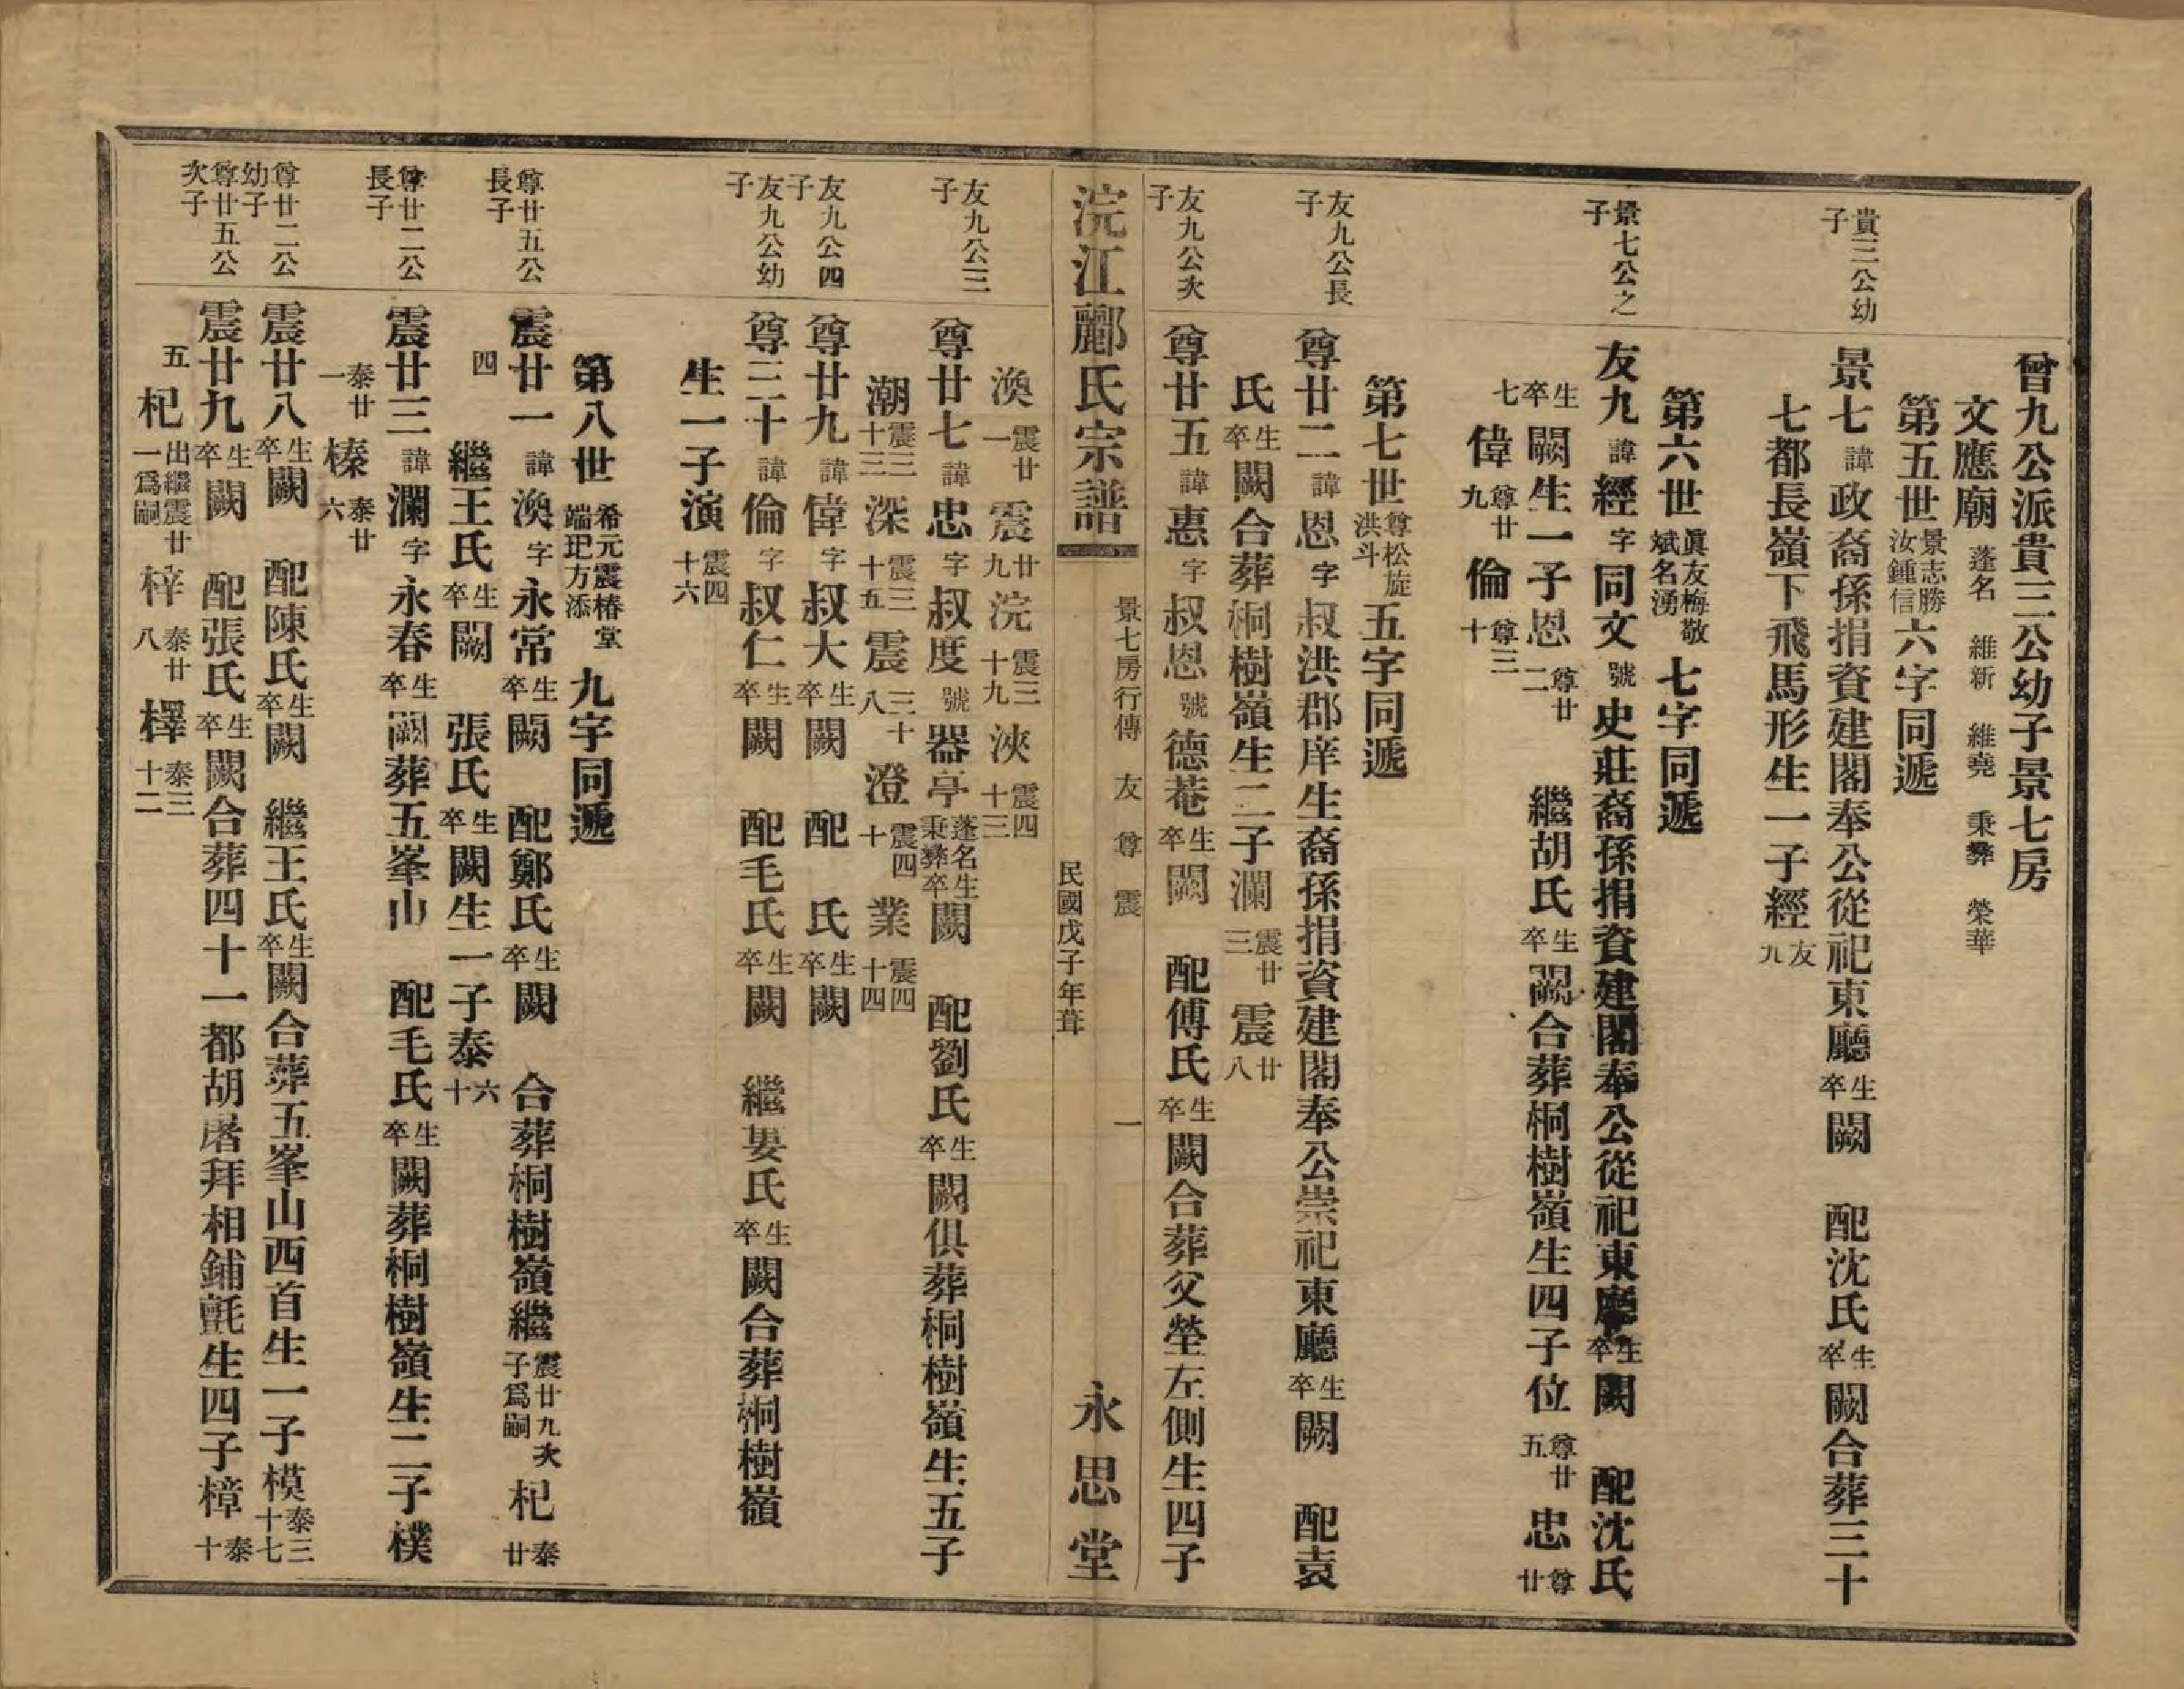 曾九公派貴三公幼子景七房
文應廟 蓬名 維新 維堯 秉彝 榮華
第五世 景志勝汝鍾信 六字同遞
貴三公幼子
景七 諱 政裔孫捐資建閣奉公從祀東廳 生卒 闕 配沈氏 生卒 闕合葬三十
七都長嶺下飛馬形生一子經 友九
第六世 眞友梅敬斌名湧 七字同遞
景七公之子
友九 諱 經 字 同文 號 史莊裔孫捐資建閣奉公從祀東廳 生卒 闕 配沈氏
生卒 闕生一子恩 尊廿二 繼胡氏 生卒 闕合葬桐樹嶺生四子位 尊廿五 忠 尊廿
七 偉 尊廿九 倫 尊三十
第七世 尊松旋洪斗 五字同遞
友九公長子
尊廿二 諱 恩 字 叔洪郡庠生裔孫捐資建閣奉公崇祀東廳 生卒 闕 配袁
氏 生卒 闕合葬桐樹嶺生二子瀾 震廿三 震 廿八
友九公次子
尊廿五 諱 惠 字 叔恩 號 德菴 生卒 闕 配傅氏 生卒 闕合葬父塋左側生四子
浣江酈氏宗譜 景七房行傳 友 尊 震 一 民國戊子年葺 永思堂
渙 震廿一 震 廿九 浣 震三十九 浹 震四十三
友九公三子
尊廿七 諱 忠 字 叔度 號 器亭 蓬名秉彝 生卒 闕 配劉氏 生卒 闕俱葬桐樹嶺生五子
潮 震三十三 深 震三十五 震 三十八 澄 震四十 業 震四十四
友九公四子
尊廿九 諱 偉 字 叔大 生卒 闕 配 氏 生卒 闕
友九公幼子
尊三十 諱 倫 字 叔仁 生卒 闕 配毛氏 生卒 闕 繼婁氏 生卒 闕合葬桐樹嶺
生一子演 震四十六
第八世 希元震椿堂端玘方添 九字同遞
尊廿五公長子
震廿一 諱 渙 字 永常 生卒 闕 配鄭氏 生卒 闕 合葬桐樹嶺繼 震廿九次子爲嗣 杞 泰廿
四 繼王氏 生卒 闕 張氏 生卒 闕生一子泰 六十
尊廿二公長子
震廿三 諱 瀾 字 永春 生卒 闕葬五峯山 配毛氏 生卒 闕葬桐樹嶺生二子樸
泰廿一 榛 泰廿六
尊廿二公幼子
震廿八 生卒 闕 配陳氏 生卒 闕 繼王氏 生卒 闕合葬五峯山西首生一子模 泰三十七
尊廿五公次子
震廿九 生卒 闕 配張氏 生卒 闕合葬四十一都胡屠拜相鋪氈生四子樟 泰十
五 杞 出繼震廿一爲嗣 梓 泰廿八 檡 泰三十二